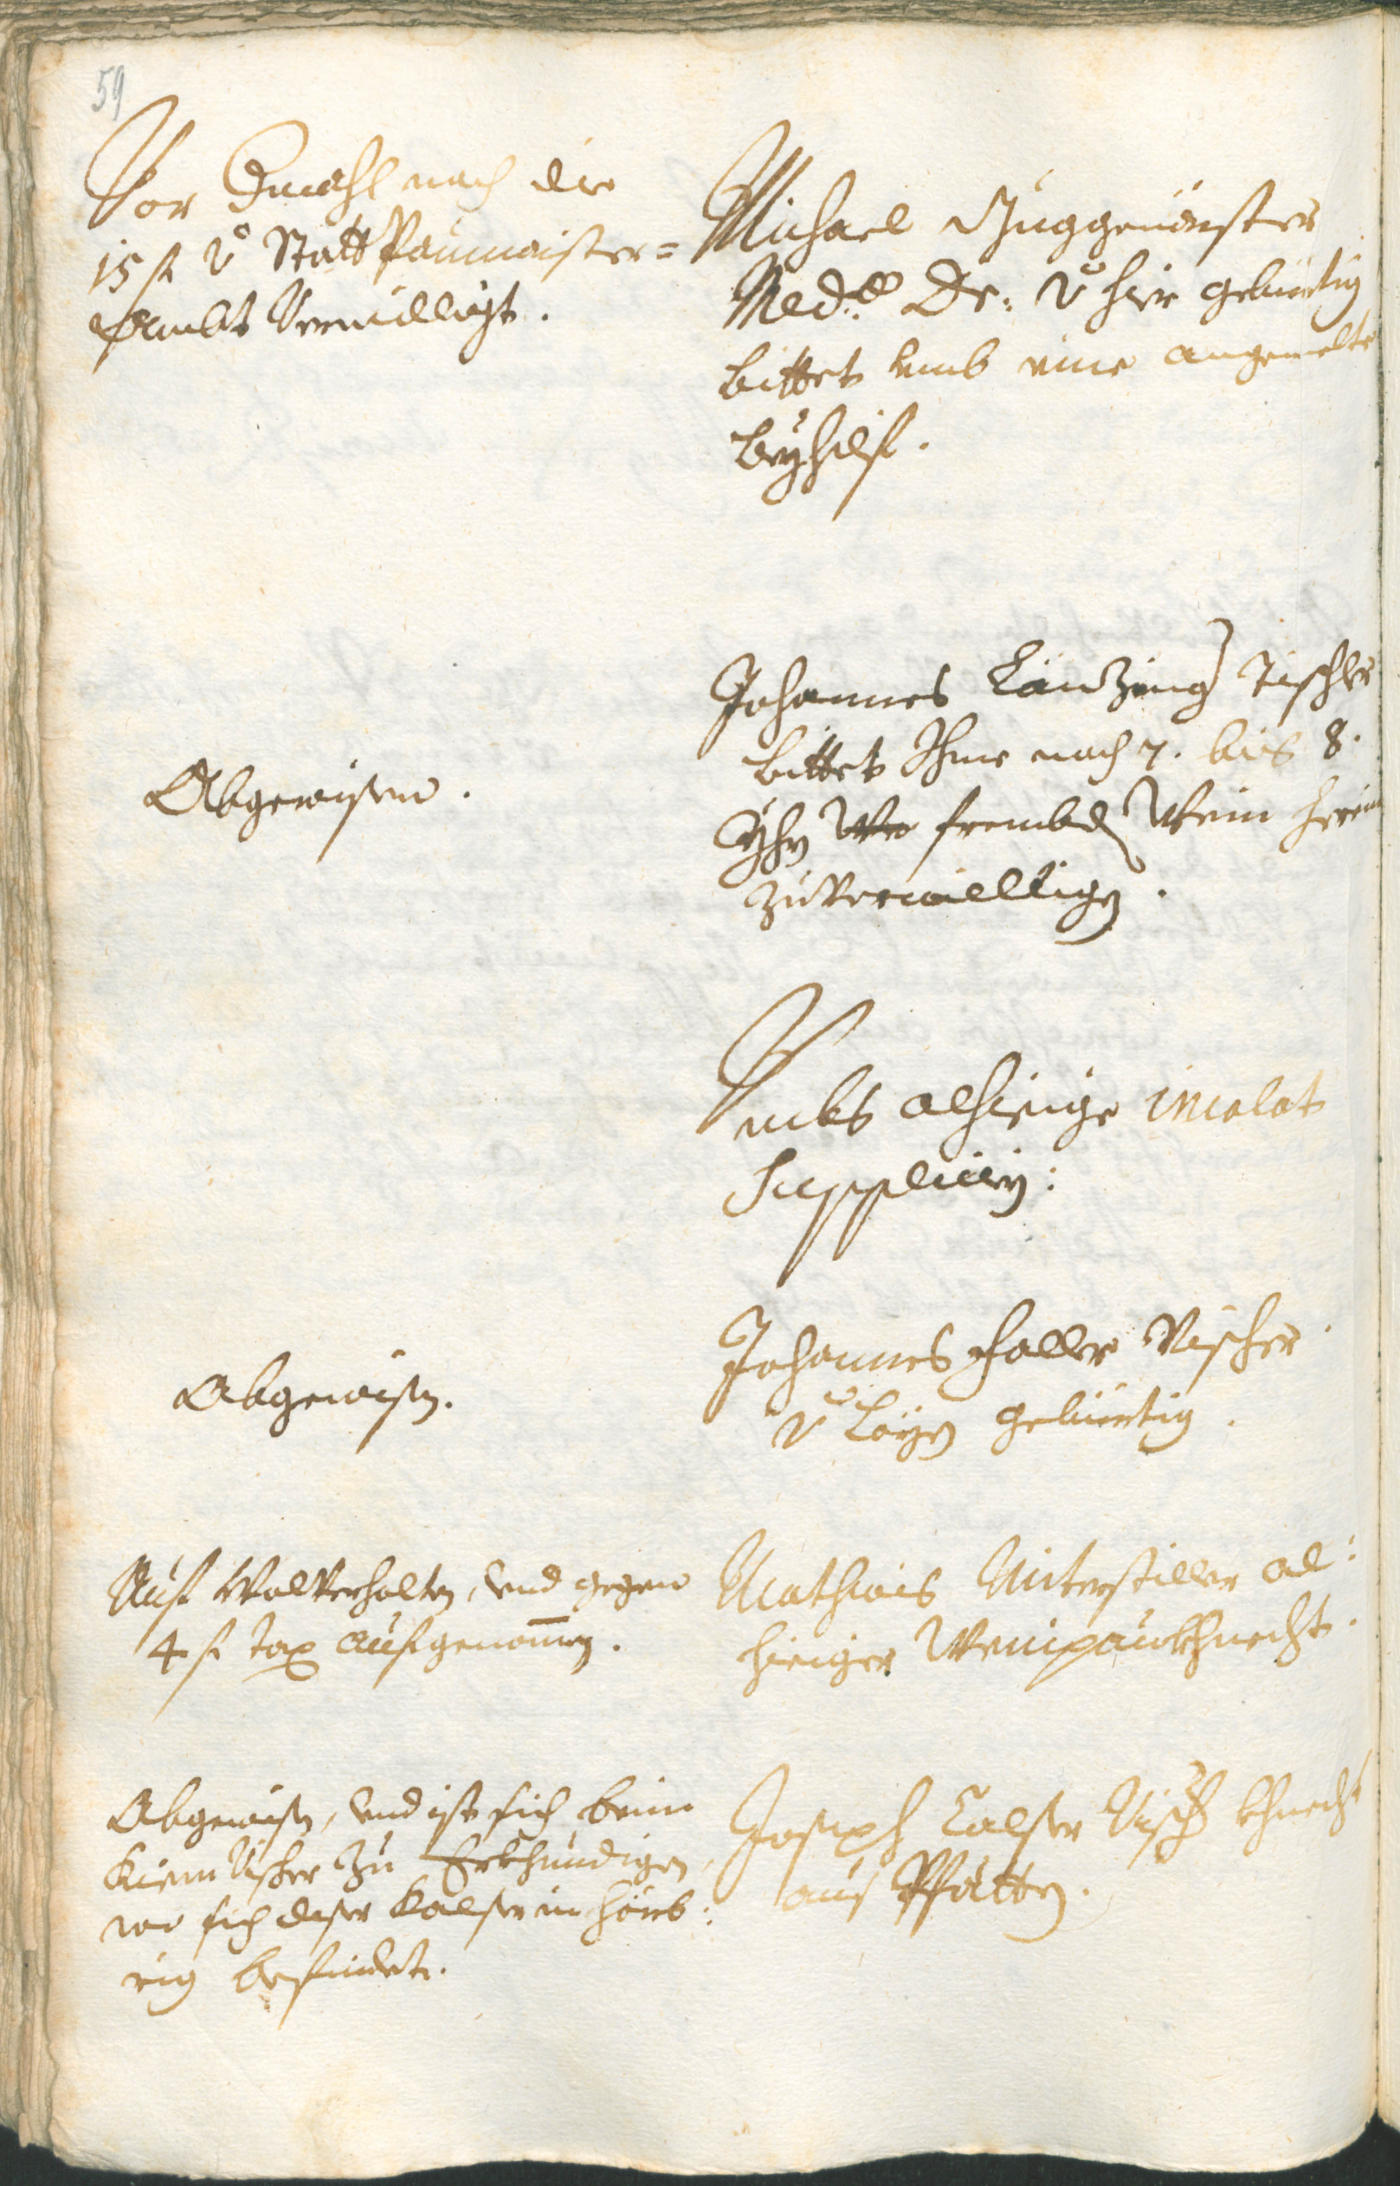 59
Vor Dmahl noch die
15 f v Statt Paumaister=
Ambt Verwilligt.
Michael Guggenönster
Med:ae Dr: v hie gebürtig
bittet umb eine angemelte
beyhilf.
Abgewisen.
Johannes Tischler
bittet Ihme noch 7. bis 8.
Yhrn frembd Wein herein
zuverwilligen.
Umbs alhieige incolat
Supplicirn:
Abgewisen.
Johannes Haller Vischer
v gebürtig.
Auf Wolverhalten, und gegen
4 f tax aufgenommen.
Mathias Unterstiller al:
hieiger Weinpaurkhnecht.
Abgewisen, und ist sich beim
Kiem Vischer zu Erkhundigen,
wo sich diser Kalser in Hörb:
rig befindet.
Joseph Calser Visch khnecht
aus Pfätten.